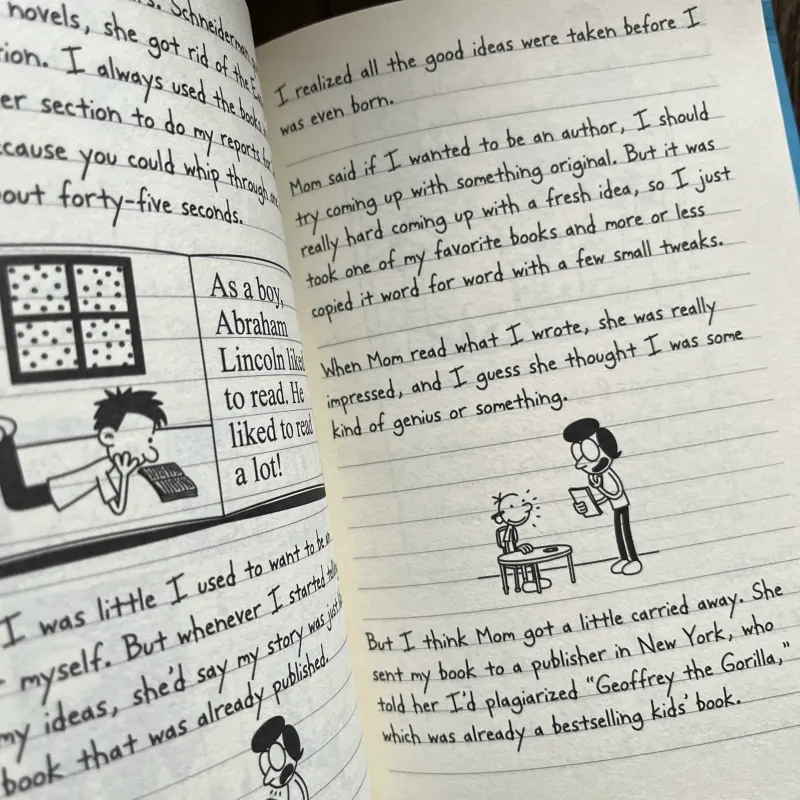 Schneiderman
novels, she got rid of the
I always used the books
er section to do my reports
cause you could whip through
out forty-five seconds.
As a boy,
Abraham
Lincoln liked
to read. He
liked to read
a lot!
I was little I used to want to be
myself. But whenever I started
my ideas, she'd say my story was just
book that was already published.
I realized all the good ideas were taken before I
was even born.
Mom said if I wanted to be an author, I should
try coming up with something original. But it was
really hard coming up with a fresh idea, so I just
took one of my favorite books and more or less
copied it word for word with a few small tweaks.
When Mom read what I wrote, she was really
impressed, and I guess she thought I was some
kind of genius or something.
But I think Mom got a little carried away. She
sent my book to a publisher in New York, who
told her I'd plagiarized "Geoffrey the Gorilla,"
which was already a bestselling kids' book.